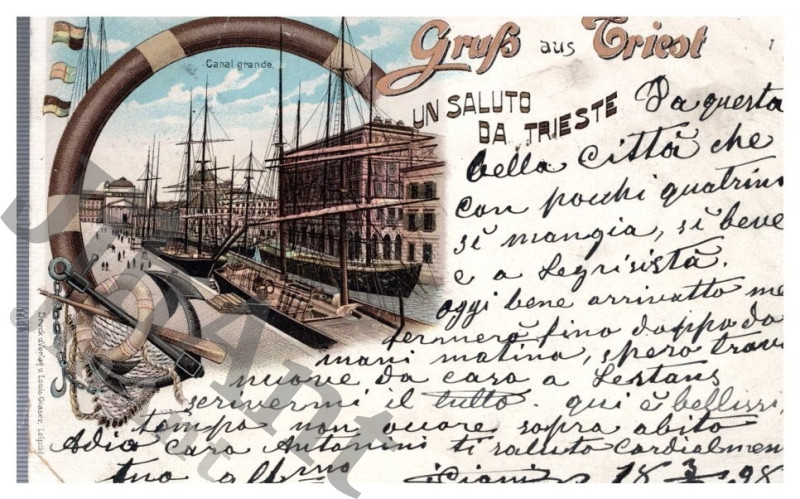 Gruß aus Triest
Canal grande.
UN SALUTO
DA TRIESTE
Da questa
bella città che
con pochi quatrini
si mangia, si beve
e a
oggi bene arrivatto me
fermerò fino doppo do
mani matina, spero trav
nuove da casa a Lestans
scrivermi il tutto. qui è bellissi
tempo non
sopra abito
Adio caro Antonini ti saluto cardialmen
tuo
18 3/ 98
Druck u. Verlag v. Louis Glaser, Leipzig